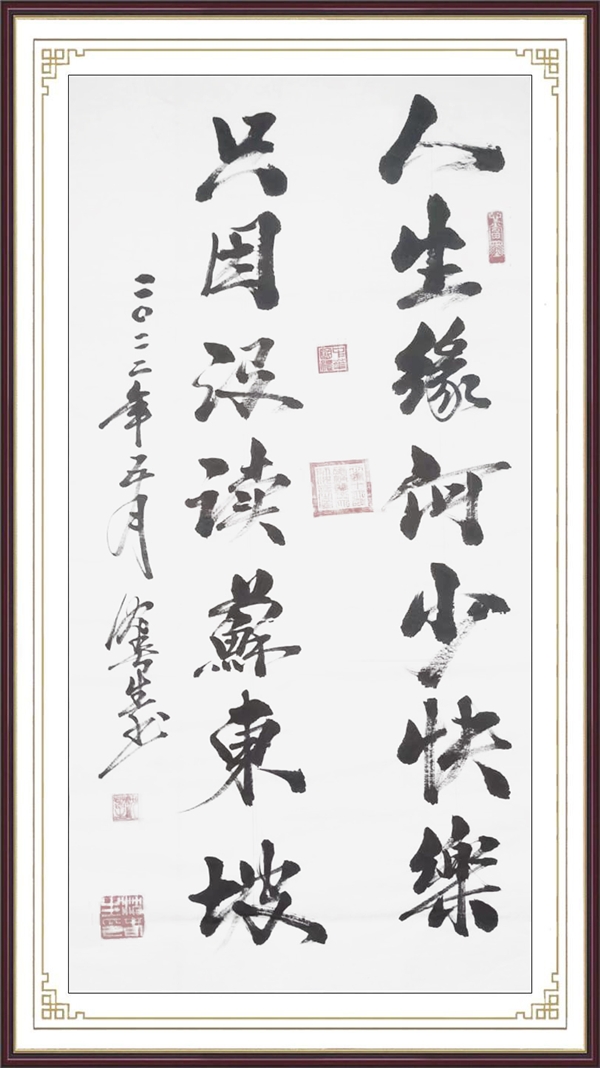 人生缘何少快樂
只因没读蘇東坡
二〇二二年五月